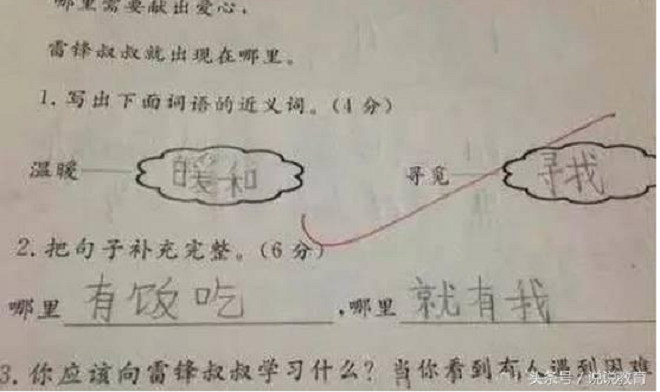 哪里需要献出爱心，
雷锋叔叔就出现在哪里。
1. 写出下面词语的近义词。(4分)
温暖 暖和 寻觅 寻找
2. 把句子补充完整。(6分)
哪里 有饭吃 ，哪里 就有我
3. 你应该向雷锋叔叔学习什么？当你看到有人遇到困难
头条号 / 悦悦教育